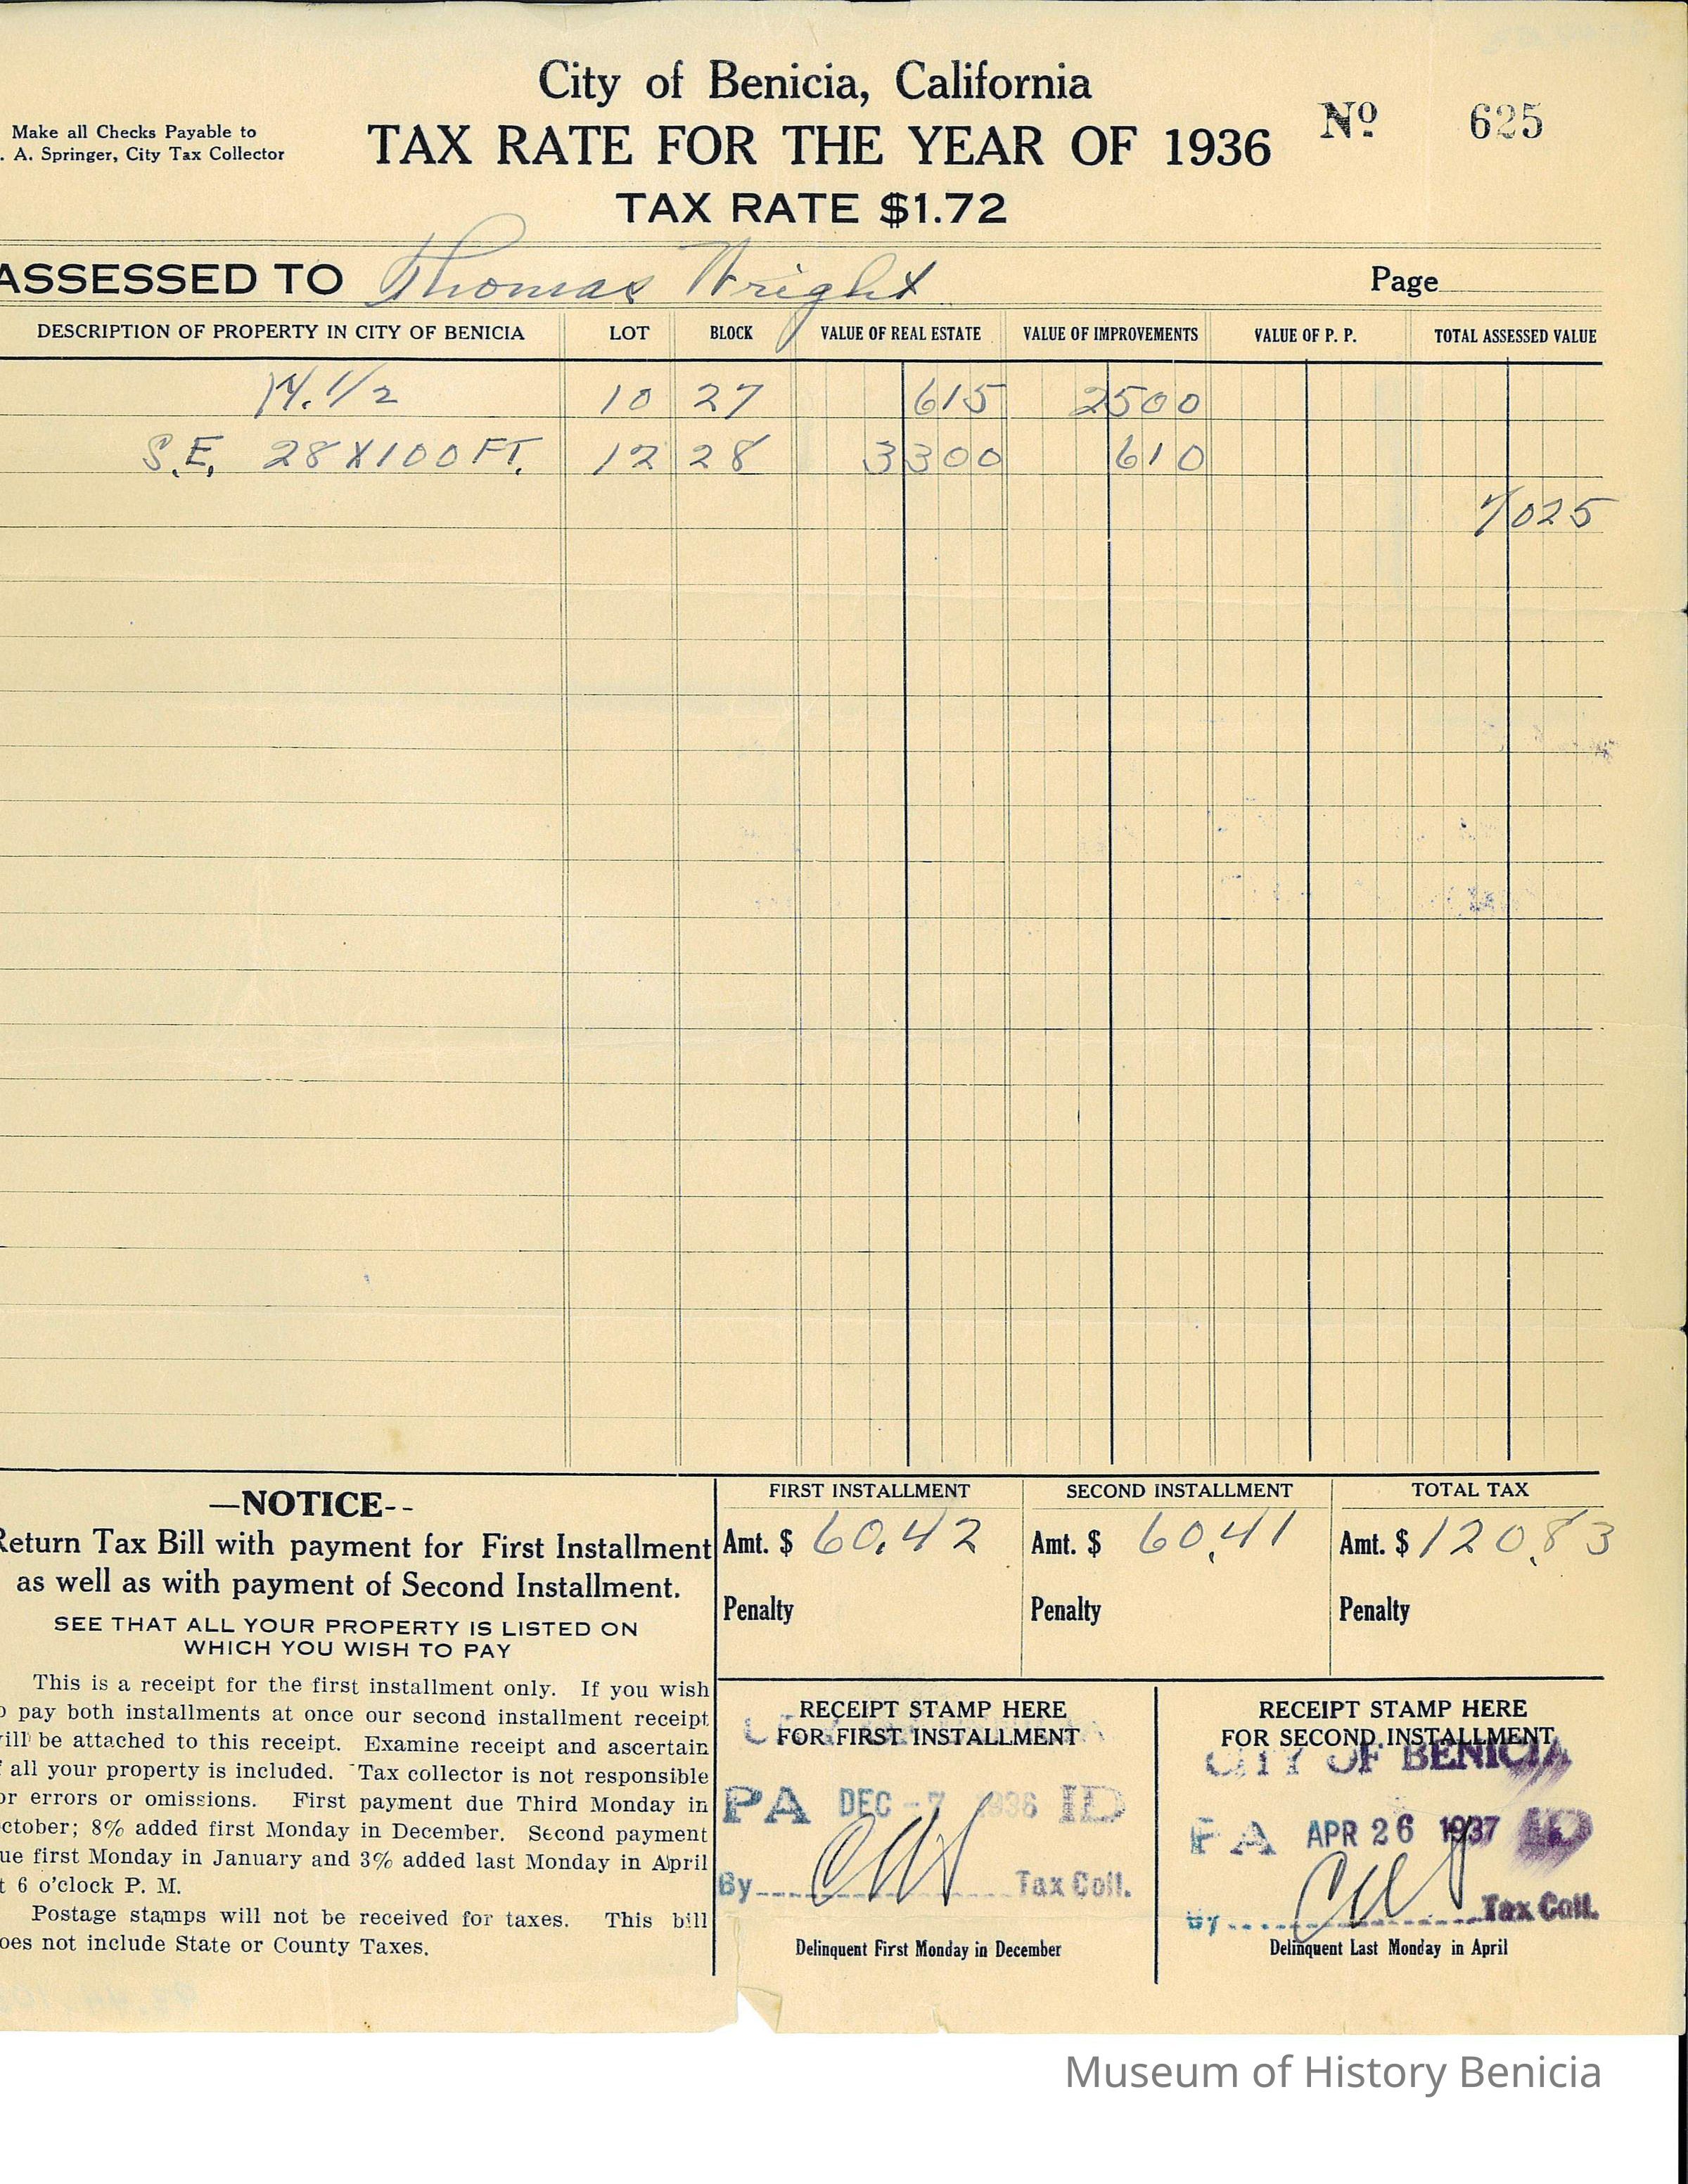 City of Benicia, California
Nº 625
Make all Checks Payable to
. A. Springer, City Tax Collector
TAX RATE FOR THE YEAR OF 1936
TAX RATE $1.72
ASSESSED TO Thomas Wright Page
DESCRIPTION OF PROPERTY IN CITY OF BENICIA LOT BLOCK VALUE OF REAL ESTATE VALUE OF IMPROVEMENTS VALUE OF P. P. TOTAL ASSESSED VALUE
1/2 10 27 615 2500
S.E. 28X100 FT. 12 28 3300 610
7025
—NOTICE--
Return Tax Bill with payment for First Installment
as well as with payment of Second Installment.
SEE THAT ALL YOUR PROPERTY IS LISTED ON
WHICH YOU WISH TO PAY
This is a receipt for the first installment only. If you wish
o pay both installments at once our second installment receipt
will be attached to this receipt. Examine receipt and ascertain
f all your property is included. Tax collector is not responsible
or errors or omissions. First payment due Third Monday in
ctober; 8% added first Monday in December. Second payment
ue first Monday in January and 3% added last Monday in April
t 6 o'clock P. M.
Postage stamps will not be received for taxes. This bill
oes not include State or County Taxes.
FIRST INSTALLMENT
Amt. $ 60.42
Penalty
SECOND INSTALLMENT
Amt. $ 60.41
Penalty
TOTAL TAX
Amt. $ 120.83
Penalty
RECEIPT STAMP HERE
FOR FIRST INSTALLMENT
PA DEC -7 1936 ID
By Tax Coll.
Delinquent First Monday in December
RECEIPT STAMP HERE
FOR SECOND INSTALLMENT
CITY OF BENICIA
PA APR 26 1937 ID
By Tax Coll.
Delinquent Last Monday in April
Museum of History Benicia